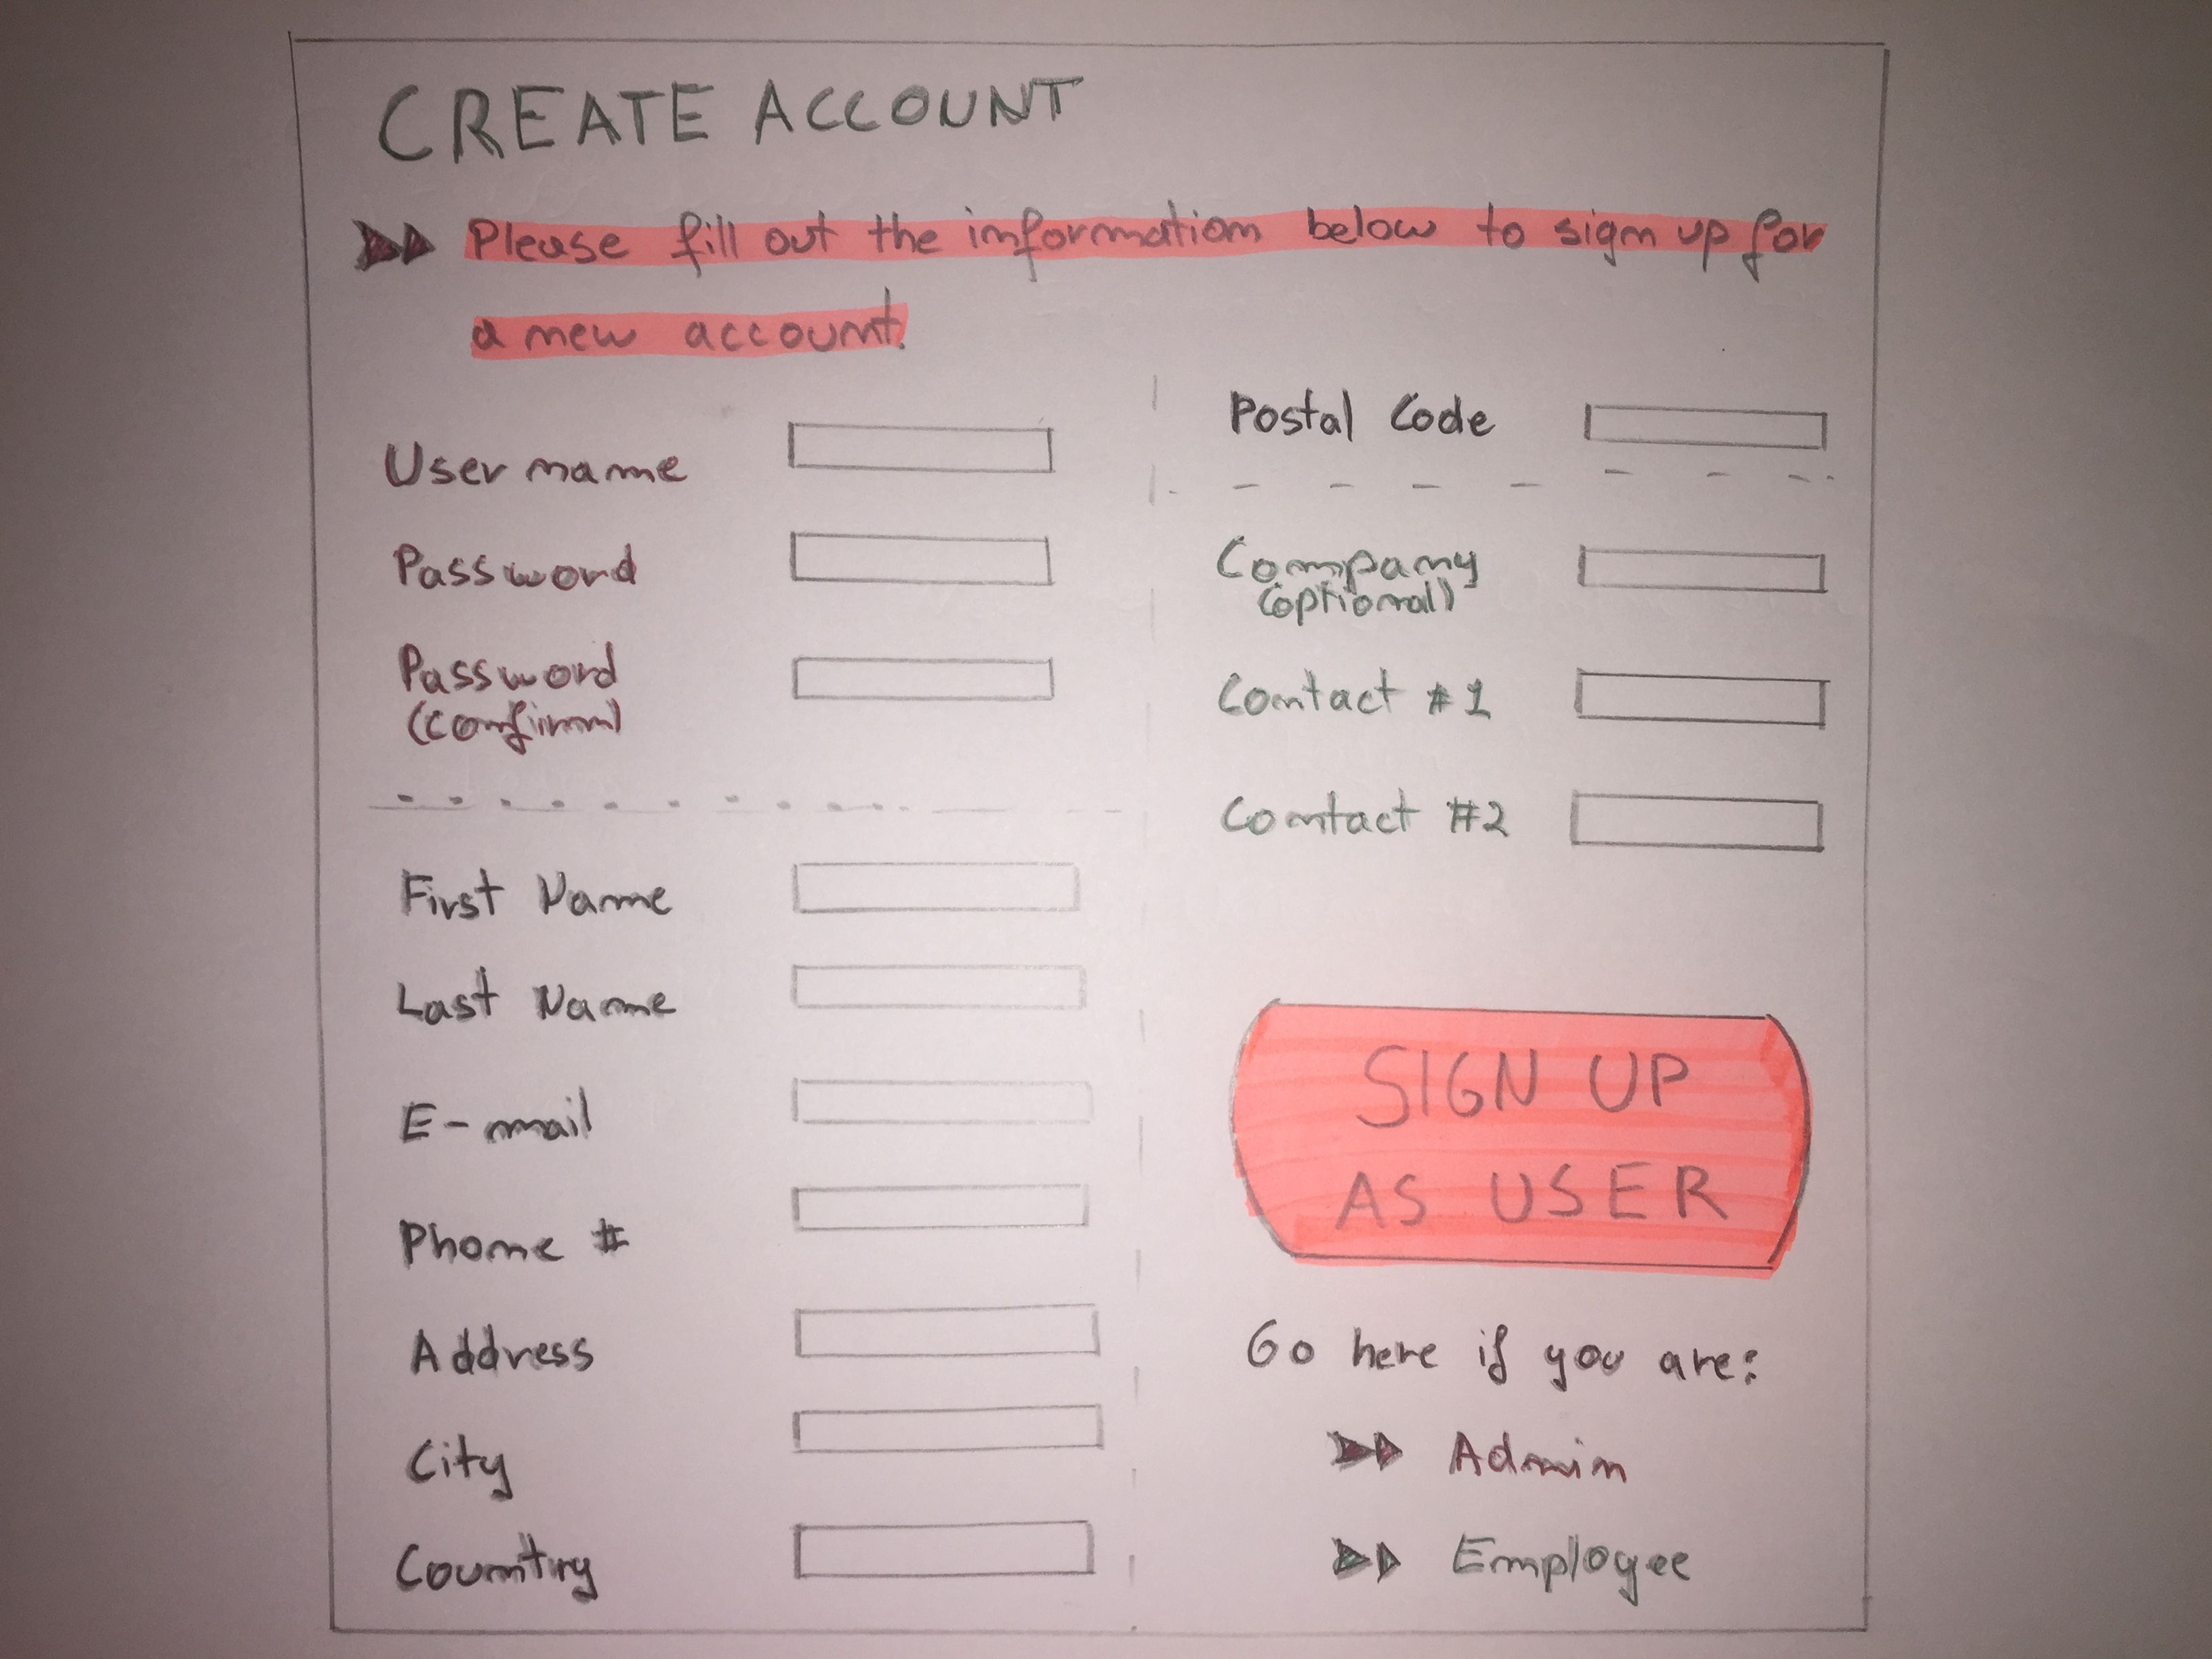 CREATE ACCOUNT
Please fill out the information below to sign up for
a new account.
Username
Password
Password
(confirm)
First Name
Last Name
E-mail
Phone #
Address
City
Country
Postal Code
Company
(optional)
Contact #1
Contact #2
SIGN UP
AS USER
Go here if you are:
Admin
Employee